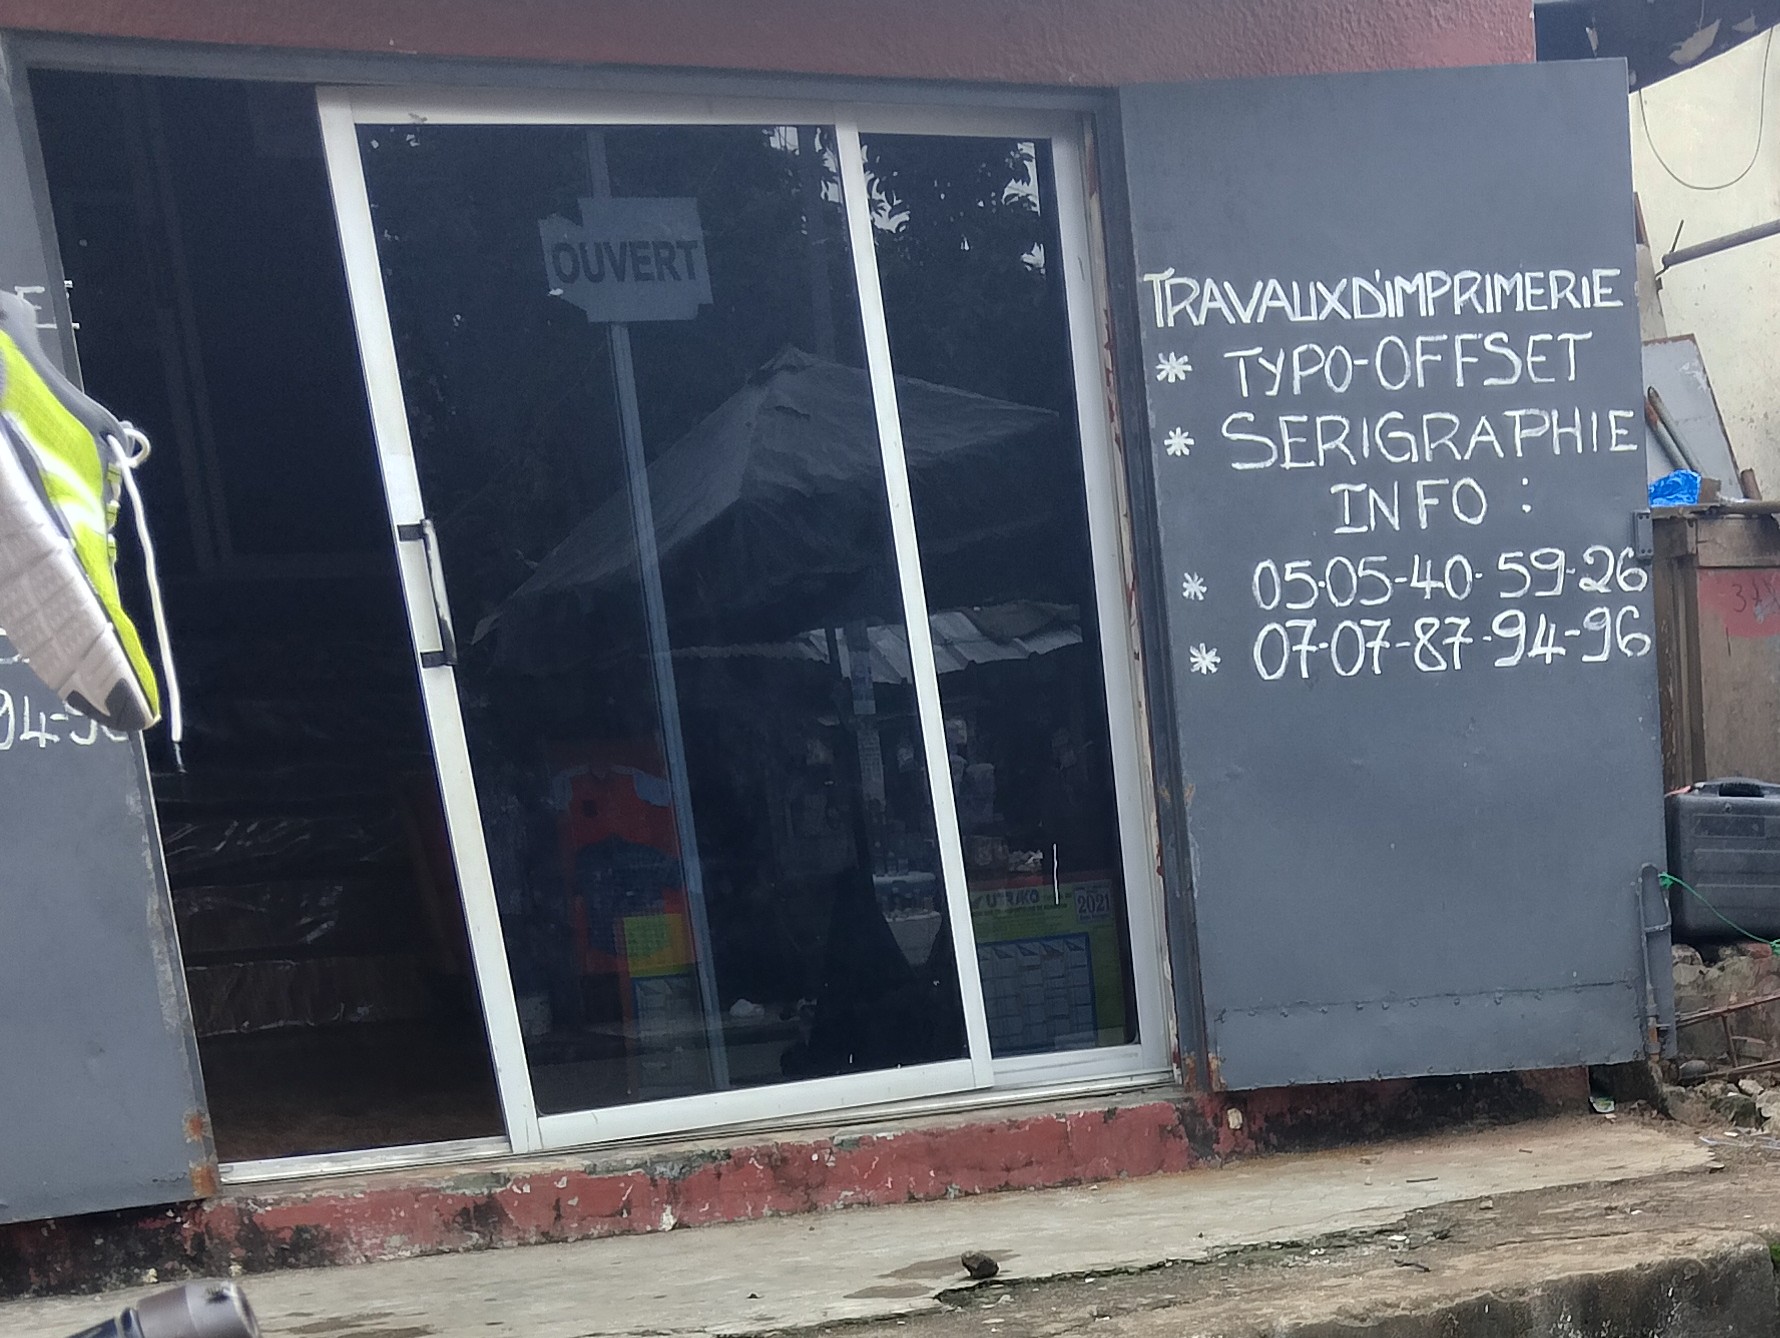 OUVERT
TRAVAUX D'IMPRIMERIE
* TYPO-OFFSET
* SERIGRAPHIE
INFO :
* 05-05-40-59-26
* 07-07-87-94-96
94-96
2021